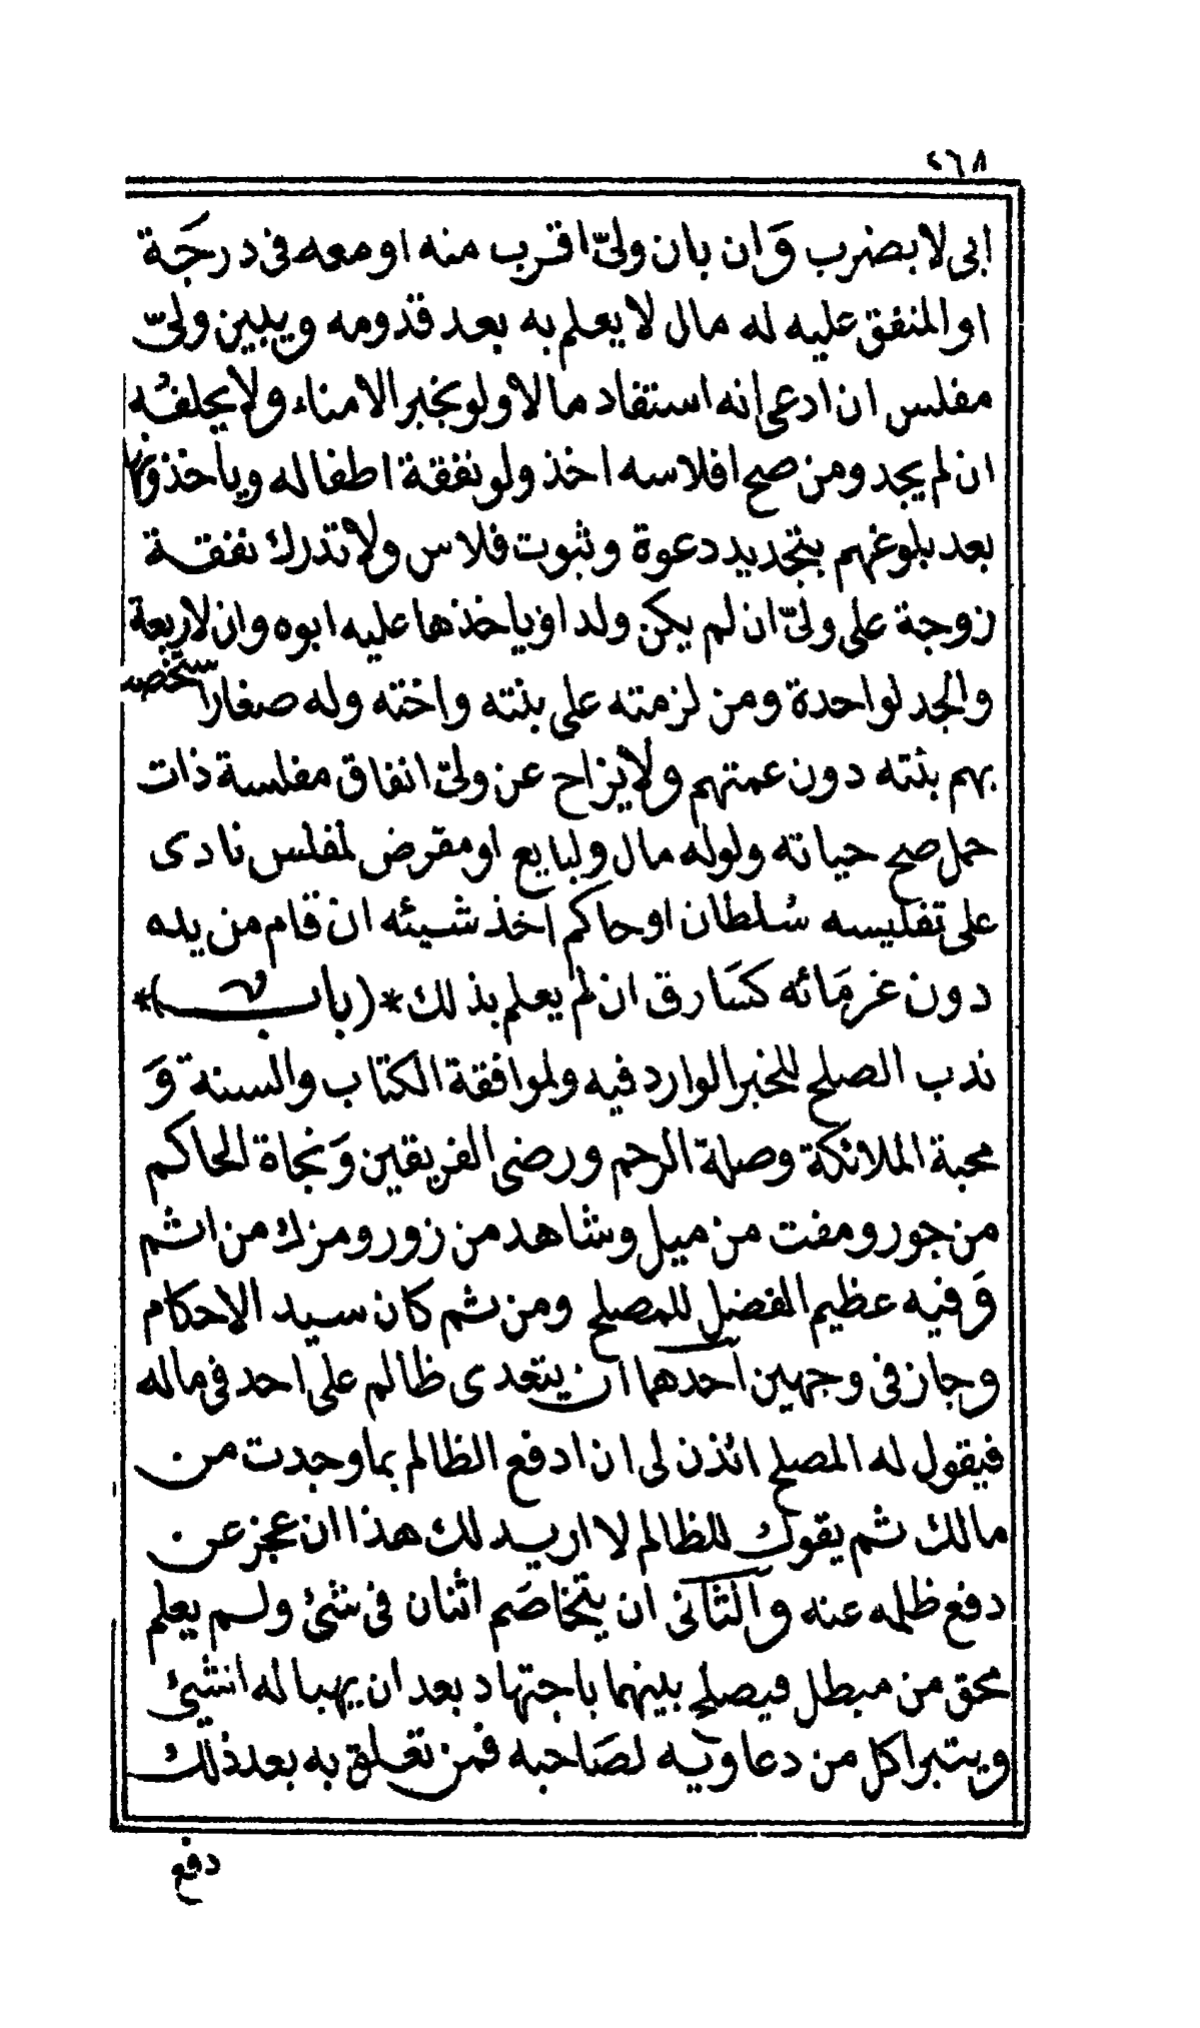 ٤٦٨
ابى لا بضرب وَان بان ولىّ اقرب منه او معه فى درجَة
او المنفق عليه له مال لا يعلم به بعد قدومه ويبين ولىّ
مفلس ان ادعى انه استفاد مالا ولو بخبر الامناء ولا يحلفُه
ان لم يجد ومن صح افلاسه اخذ ولو نفقة اطفاله وياخذونها
بعد بلوغهم بتجديد دعوة وثبوت فلاس ولا تدرك نفقة
زوجة على ولىّ ان لم يكن ولد او ياخذها عليه ابوه وان لاربعة
والجد لواحدة ومن لزمته على بنته واخته وله صغارا ستخصه
بهم بنته دون عمتهم ولا يزاح عن ولىّ انفاق مفلسة ذات
حمل صح حياته ولو له مال ولبايع او مقرض لمفلس نادى
على تفليسه سُلطان او حاكم اخذ شيئه ان قام من يده
دون غرمَائه كسَارق ان لم يعلم بذلك *(باب)*
ندب الصلح للخبر الوارد فيه ولموافقة الكتاب والسنة وَ
محبة الملائكة وصلة الرحم ورضى الفريقين وَنجاة الحاكم
من جور ومفت من ميل وشاهد من زور ومزك من اثم
وَفيه عظيم الفضل للمصلح ومن ثم كان سيد الاحكام
وجاز فى وجهين احدهما ان يتعدى ظالم على احد فى ماله
فيقول له المصلح ائذن لى ان ادفع الظالم بما وجدت من
مالك ثم يقول للظالم لا اريد لك هذا ان عجز عن
دفع ظلمه عنه والثانى ان يتخاصَم اثنان فى شئ ولم يعلم
محق من مبطل فيصلح بينهما باجتهاد بعد ان يهبا له انشئ
ويتبرا كل من دعاويه لصَاحبه فمن تعلق به بعد ذلك
دفع